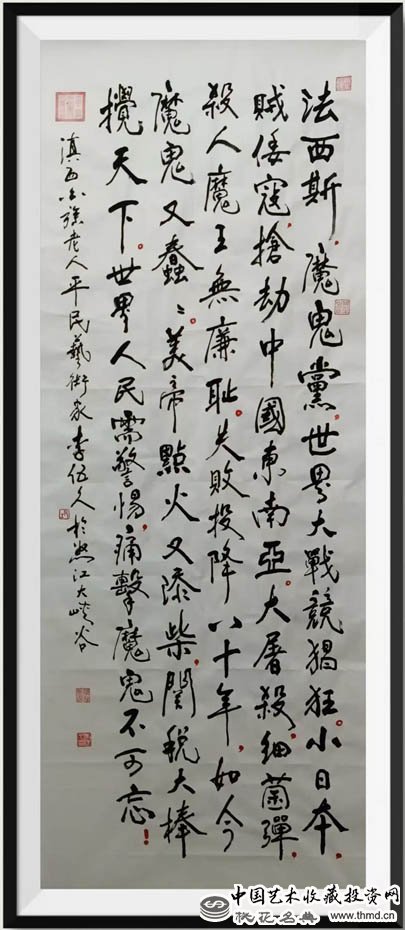 法西斯,魔鬼黨,世界大戰競猖狂。小日本,
賊倭寇,搶劫中國東南亞。大屠殺,細菌彈,
殺人魔王無廉耻。失敗投降八十年,如今
魔鬼又蠢蠢。美帝點火又添柴。関税大棒
攪天下。世界人民需警惕,痛擊魔鬼不可忘!
滇西老人平民藝術家李伍久於怒江大峽谷
中国艺术收藏投资网
桃花·名典 www.thmd.cn